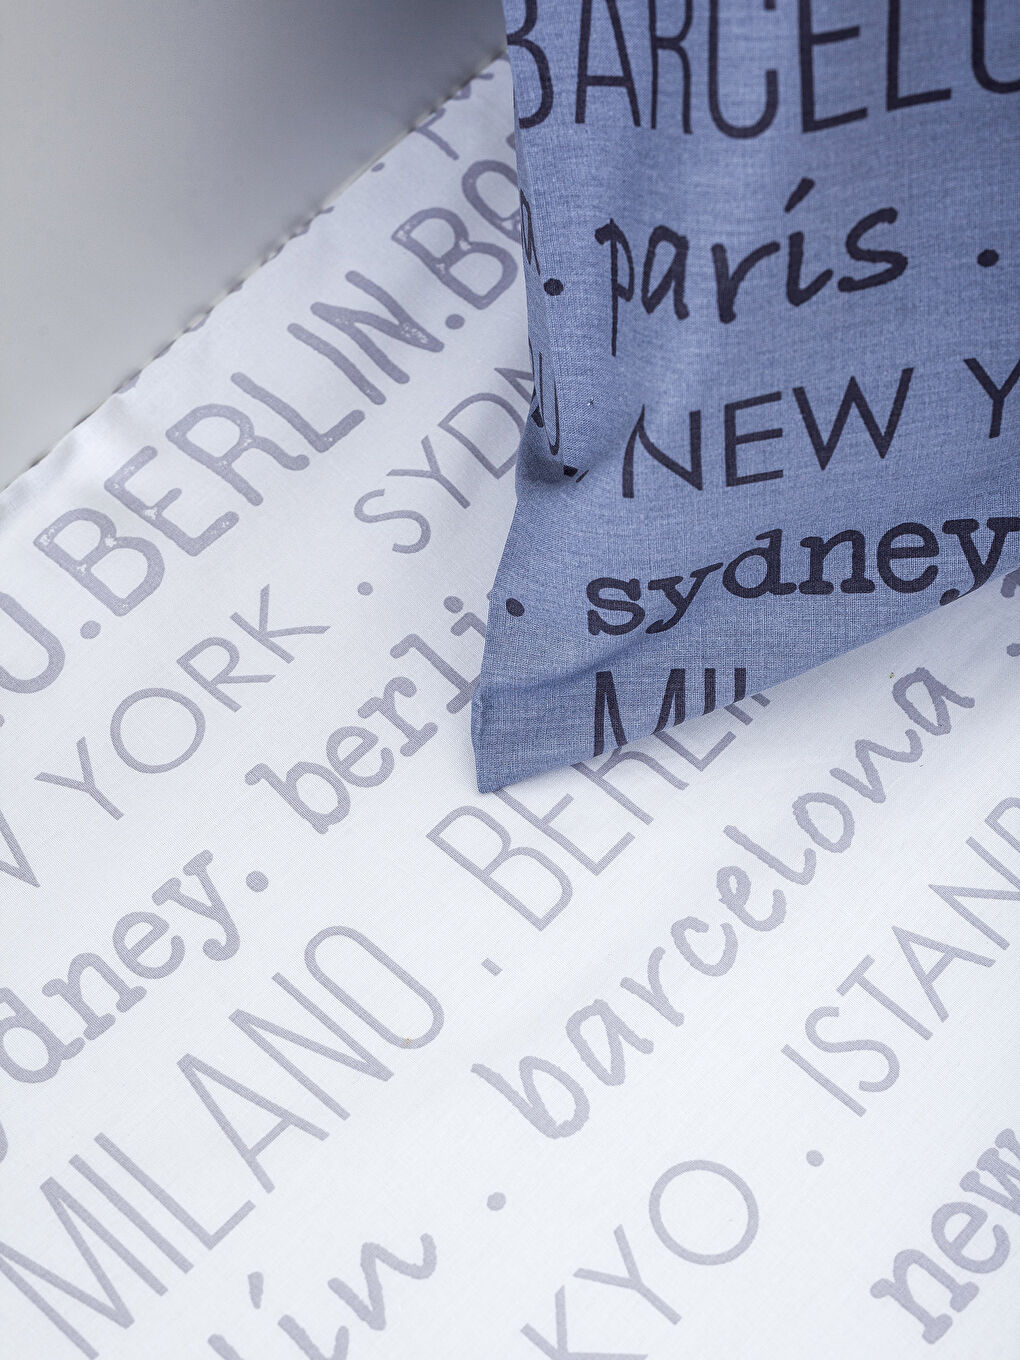 BARCELO
paris .
NEW Y
sydney
MIL
.BERLIN.BO
YORK . SYDN
dney. berli
MILANO . BERLI
lin . barcelona .
KYO . ISTAN
new